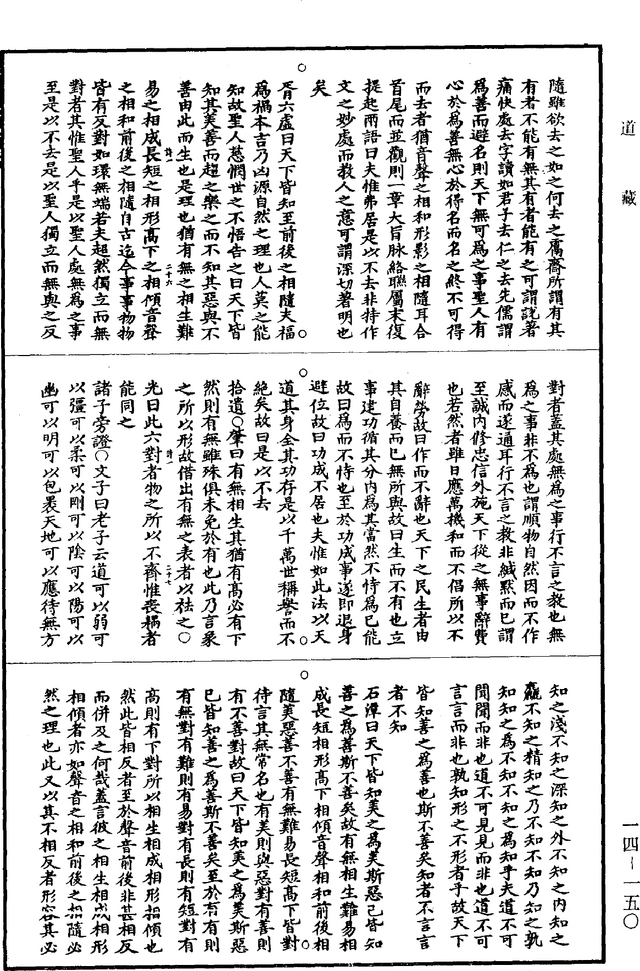 隨雖欲去之如之何去之廌齋所謂有其
有者不能有無其有者能有之可謂說著
痛快處去字讀如君子去仁之去先儒謂
為善而避名則天下無可為之事聖人有
心於為善無心於得名而名之終不可得
而去者猶音聲之相和形影之相隨耳合
首尾而並觀則一章大旨脉絡聯屬末復
提起兩語曰夫惟弗居是以不去非特作
文之妙處而教人之意可謂深切著明也
矣
胥六虛曰天下皆知至前後之相隨夫福
為禍本吉乃凶源自然之理也人莫之能
知故聖人慈憫世之不悟告之曰天下皆
知其美善而趨之樂之而不知其惡與不
善由此而生也是理也猶有無之相生難
易之相成長短之相形高下之相傾音聲
之相和前後之相隨自古迄今事事物物
皆有反對如環無端若夫超然獨立而無
對者其惟聖人乎是以聖人處無為之事
至是以不去是以聖人獨立而無與之反
對者蓋其處無為之事行不言之教也無
為之事非不為也謂順物自然因而不作
感而遂通耳行不言之教非緘默而已謂
至誠內修忠信外施天下從之無事辭費
也若然者雖日應萬機和而不倡所以不
辭勞故曰作而不辭也天下之民生者由
其自養而已無所與故曰生而不有也立
事建功循其分內為其當然不恃為已能
故曰為而不恃也至於功成事遂即退身
避位故曰功成不居也夫惟如此法以天
道其身全其功存是以千萬世稱譽而不
絕矣故曰是以不去
拾遺○肇曰有無相生其猶有高必有下
然則有無雖殊俱未免於有也此乃言象
之所以形故借出有無之表者以祛之○
光曰此六對者物之所以不齊惟喪耦者
能同之
諸子旁證○文子曰老子云道可以弱可
以彊可以柔可以剛可以陰可以陽可以
幽可以明可以包裹天地可以應待無方
知之淺不知之深知之外不知之內知之
麤不知之精知之乃不知不知乃知之孰
知知之為不知不知之為知乎夫道不可
聞聞而非也道不可見見而非也道不可
言言而非也孰知形之不形者乎故天下
皆知善之為善也斯不善矣知者不言言
者不知
石潭曰天下皆知美之為美斯惡已皆知
善之為善斯不善矣故有無相生難易相
成長短相形高下相傾音聲相和前後相
隨美惡善不善有無難易長短高下皆對
待言其無常名也有美則與惡對有善則
有不善對故曰天下皆知美之為美斯惡
已皆知善之為善斯不善矣至於有有則
有無對有難則有易對有長則有短對有
高則有下對所以相生相成相形相傾也
然此皆相反者至於聲音前後非甚相反
而併及之何哉蓋言彼之相生相成相形
相傾者亦如聲音之相和前後之相隨必
然之理也此又以其不相反者形容其必
道藏
一四－一五〇